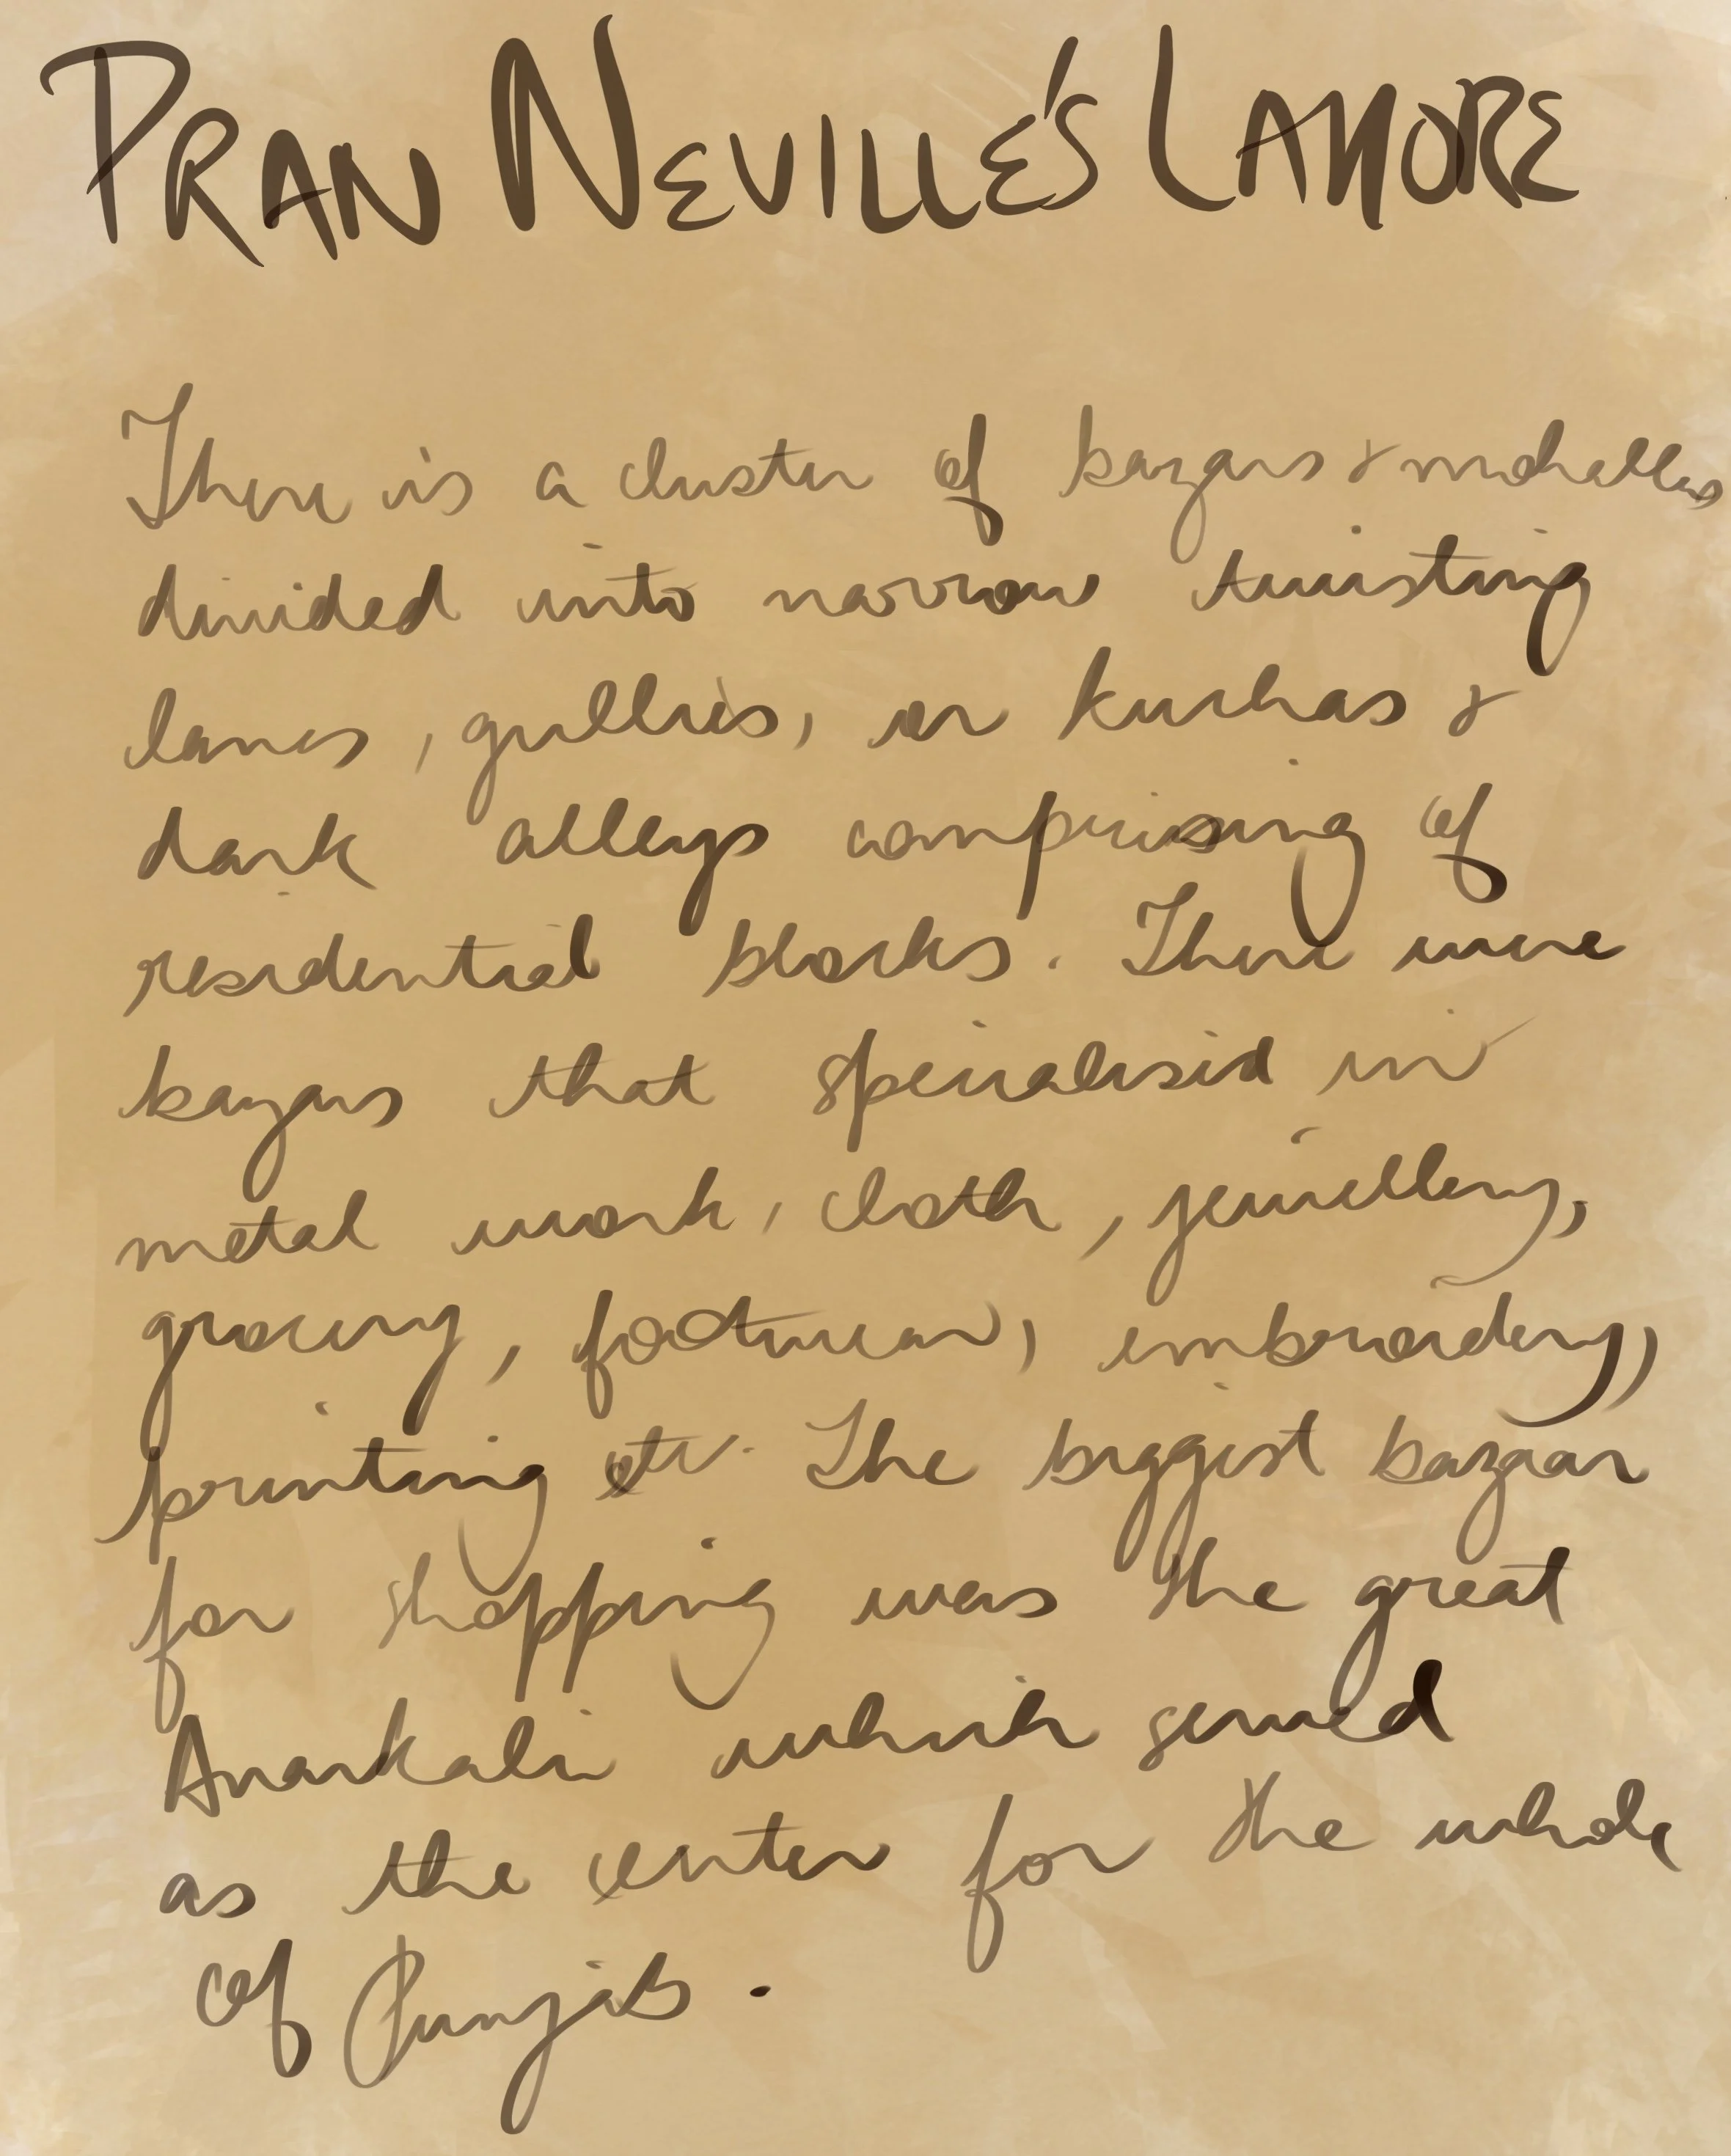 PRAN NEVILLE'S LAHORE
There is a cluster of bazars & mohallas
divided into narrow twisting
lanes, gullies, or kuchas &
dark alleys comprising of
residential blocks. There were
bazars that specialised in
metal work, cloth, jewellery,
grocery, footwear, embroidery,
printing etc. The biggest bazaar
for shopping was the great
Anarkali which served
as the center for the whole
of Punjab.